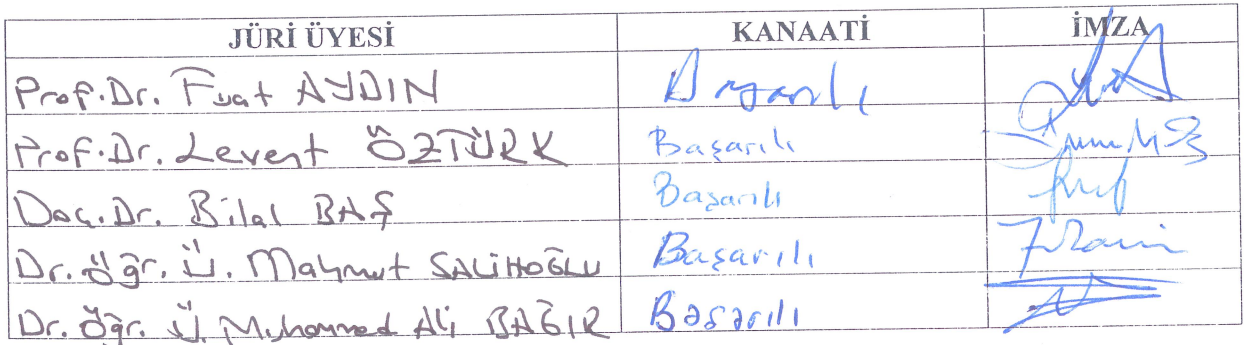 JÜRİ ÜYESİ KANAATİ İMZA
Prof.Dr. Fuat AYDIN Başarılı
Prof.Dr. Levent ÖZTÜRK Başarılı
Doç.Dr. Bilal BAŞ Başarılı
Dr. Öğr. Ü. Mahmut SALİHOĞLU Başarılı
Dr. Öğr. Ü. Muhammed Ali BAĞIR Başarılı